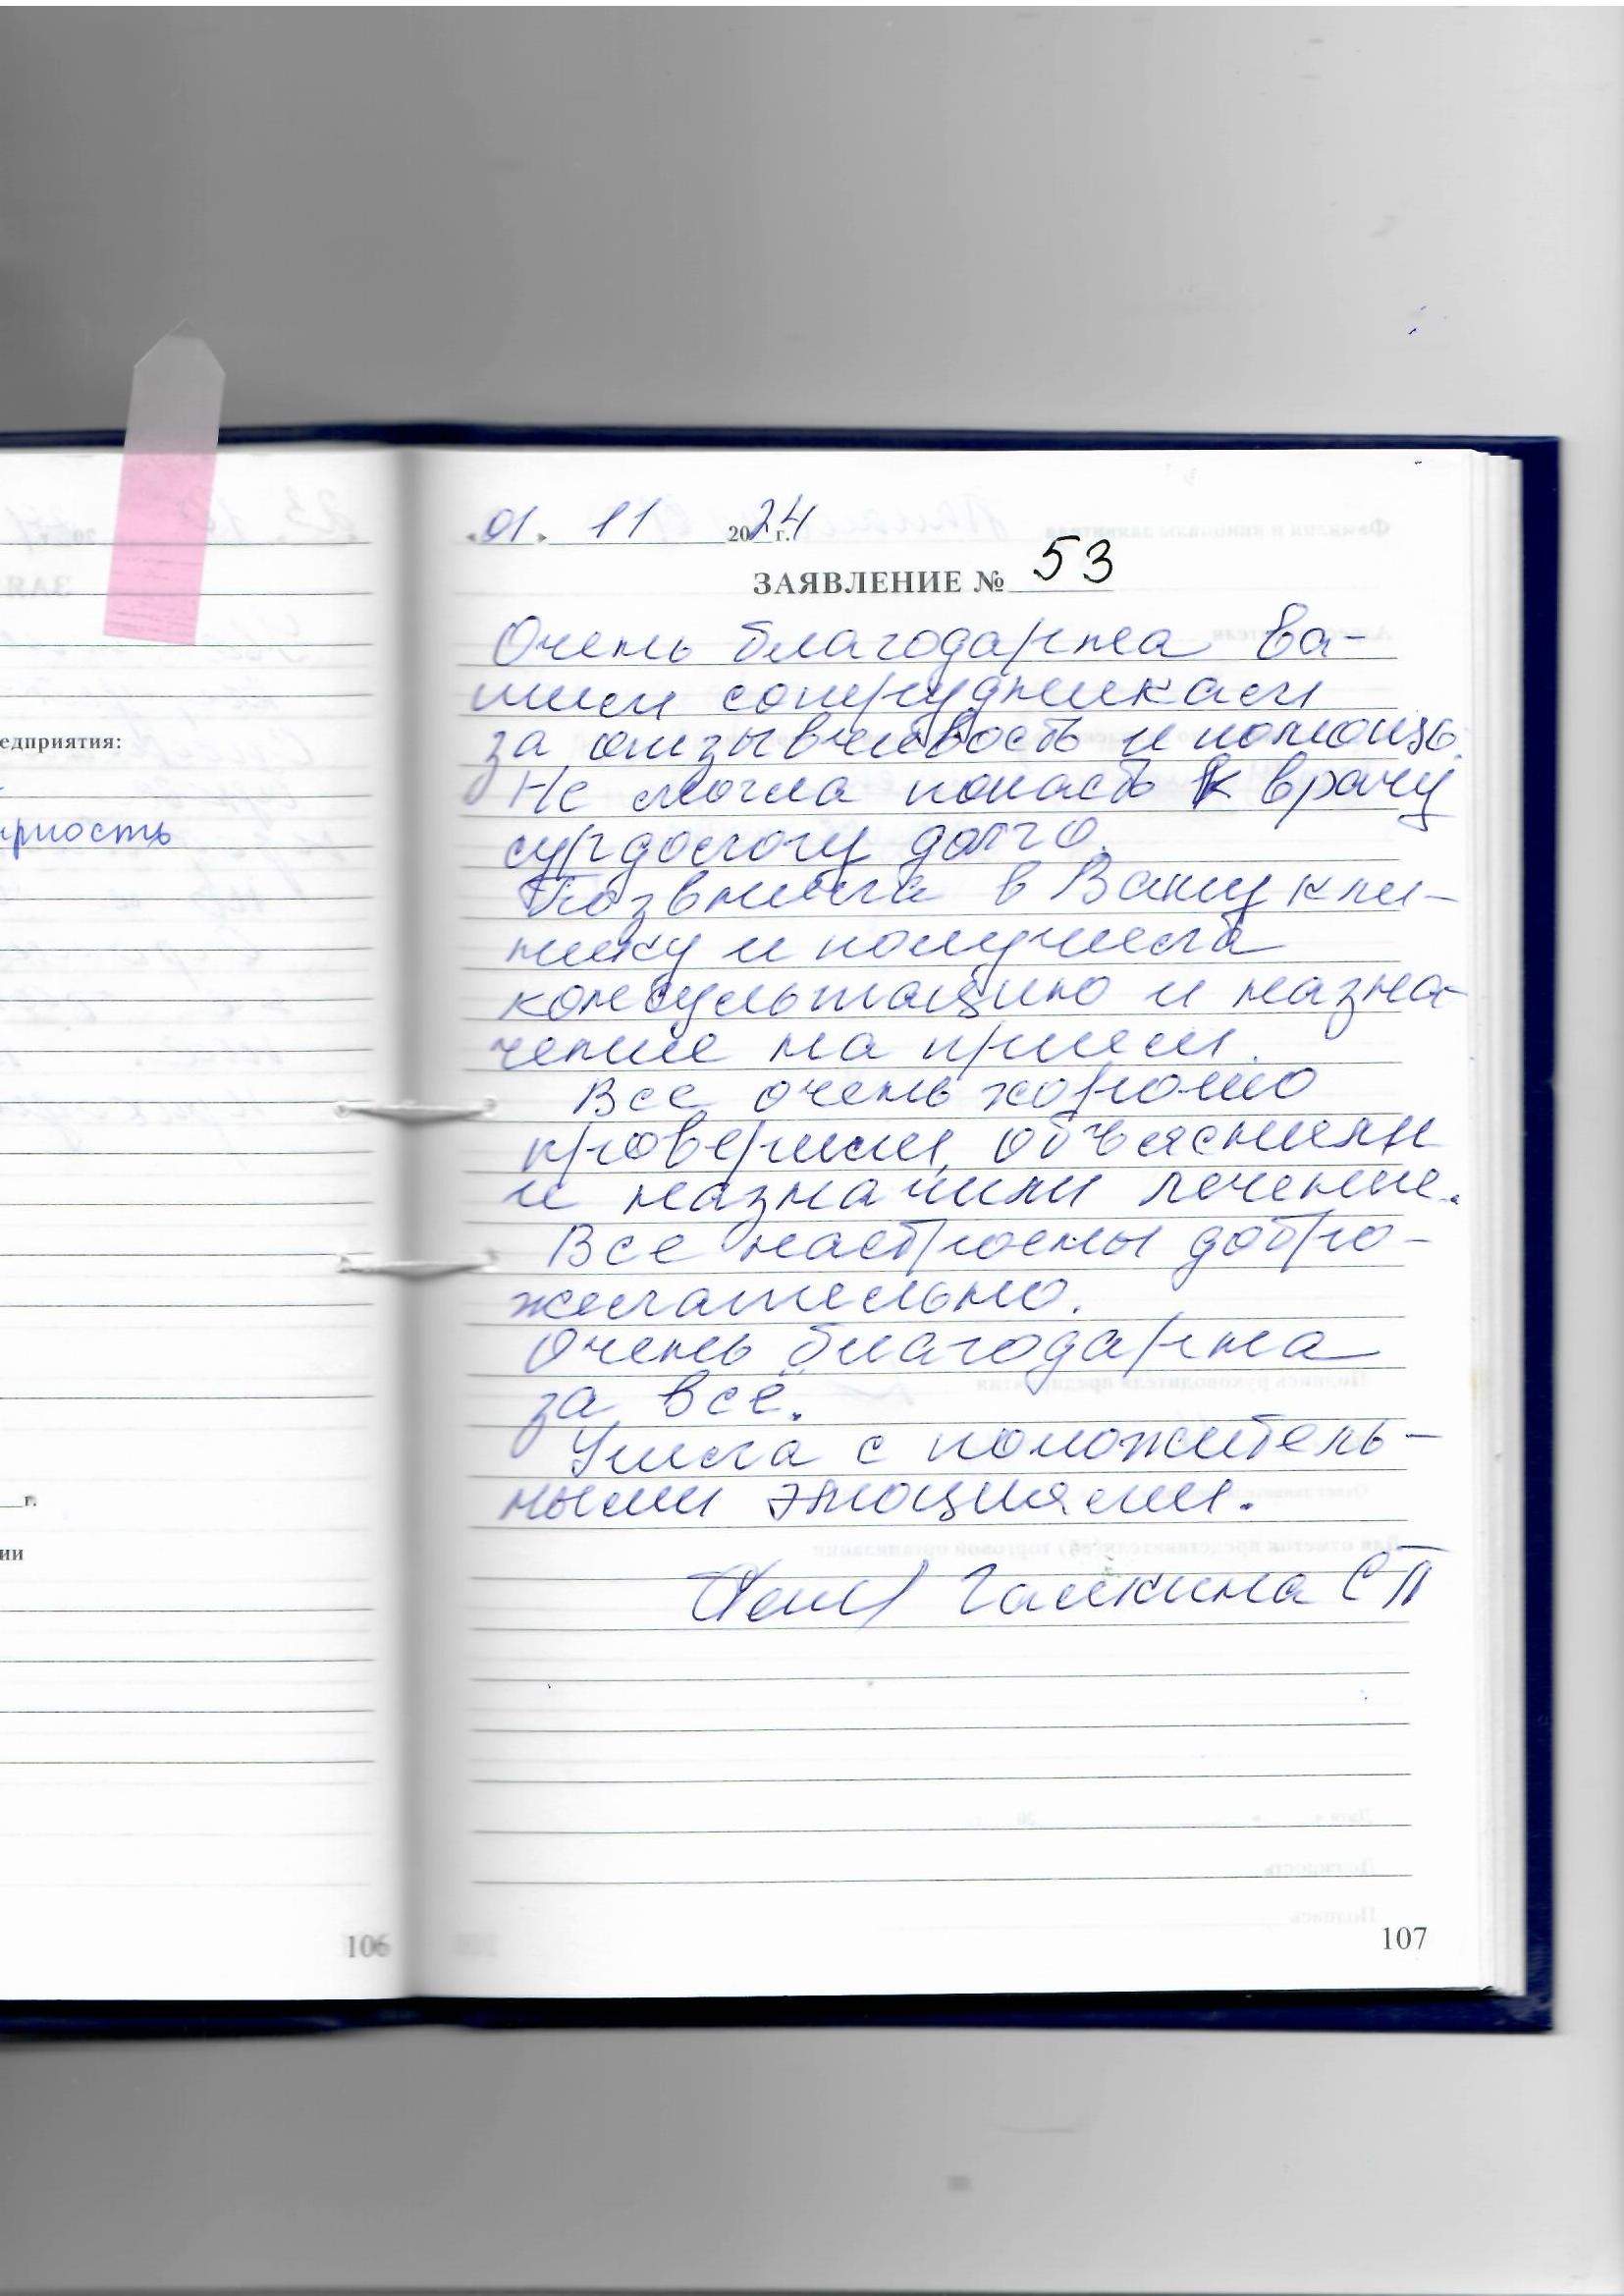 едприятия:
рность
г.
ии
106
«01» 11 2024 г.
ЗАЯВЛЕНИЕ № 53
Очень благодарна Ва-
шим сотрудникам
за отзывчивость и помощь.
Не могла попасть к врачу
сурдологу долго.
Позвнила в Вашу кли-
нику и получила
консультацию и назна-
чение на прием.
Все очень хорошо
проверили, объяснили
и назначили лечение.
Все настроены добро-
желательно.
Очень благодарна
за всё.
Ушла с положитель-
ными эмоциями.
Галкина СП
107